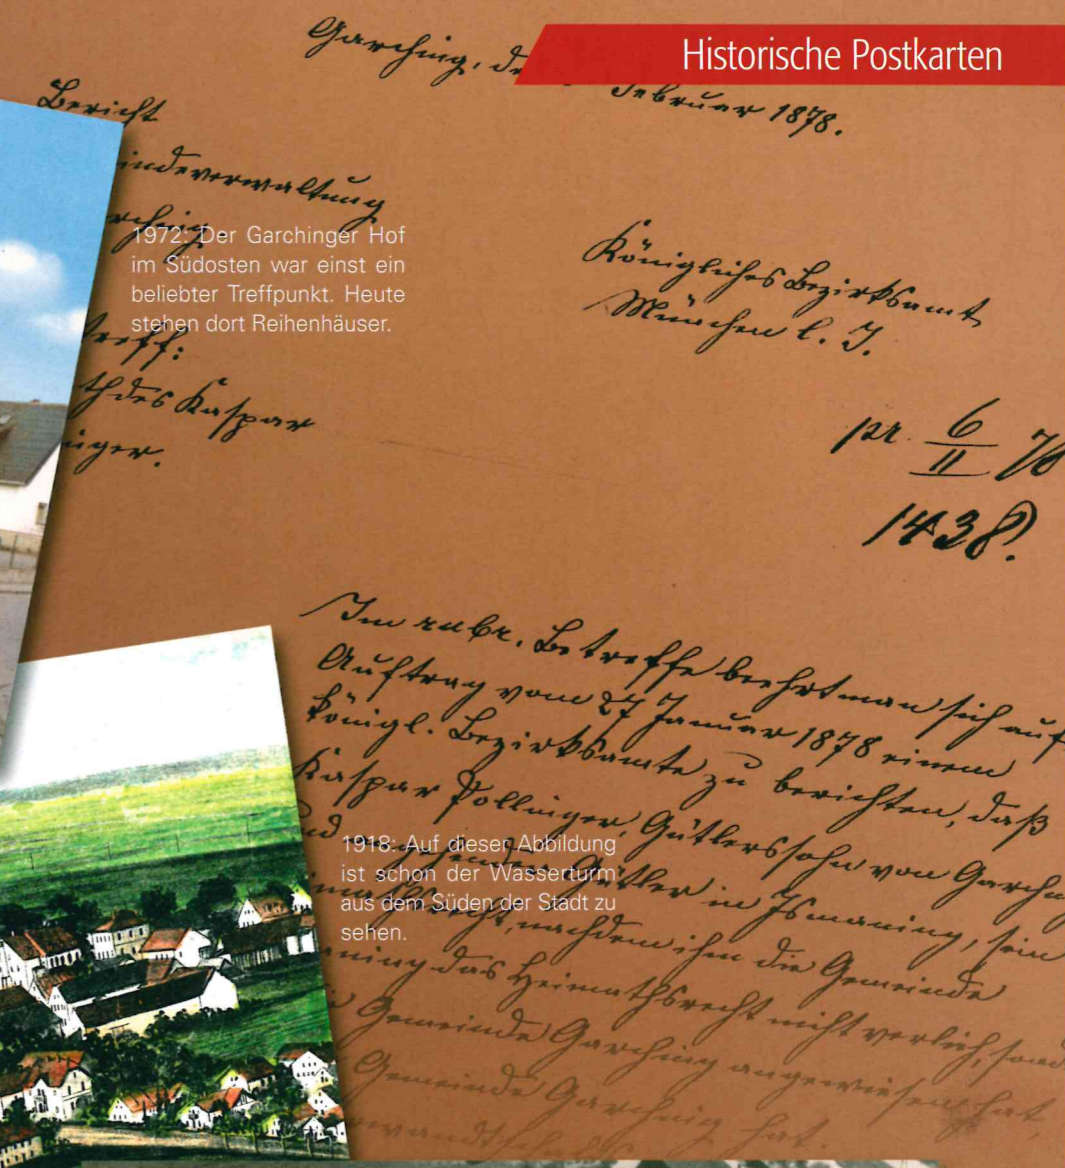 Historische Postkarten
Garching, de
Februar 1878.
Bericht
indeverwaltung
rching
1972: Der Garchinger Hof
im Südosten war einst ein
beliebter Treffpunkt. Heute
stehen dort Reihenhäuser.
Königliches Bezirksamt
München l. I.
treff:
th des Kaspar
inger.
pr. 6/II 78
1438.
Im rubr. Betreffe beehrt man sich auf
Auftrag vom 27 Januar 1878 einem
königl. Bezirksamte zu berichten, daß
Kaspar Pollinger, Gütlerssohn von Garching
und Gütler in Ismaning, sein
imathsrecht, nachdem ihm die Gemeinde
aning das Heimathsrecht nicht verlieh, son
Gemeinde Garching angewiesen hat,
Gemeinde Garching hat.
1918: Auf dieser Abbildung
ist schon der Wasserturm
aus dem Süden der Stadt zu
sehen.